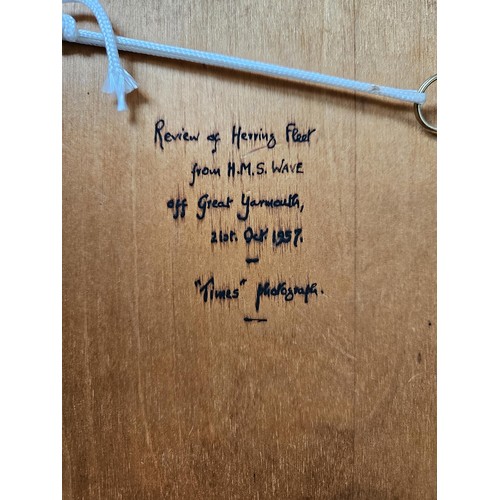 Review of Herring Fleet
from H.M.S. WAVE
off Great Yarmouth,
21st. Oct. 1957.
"Times" photograph.